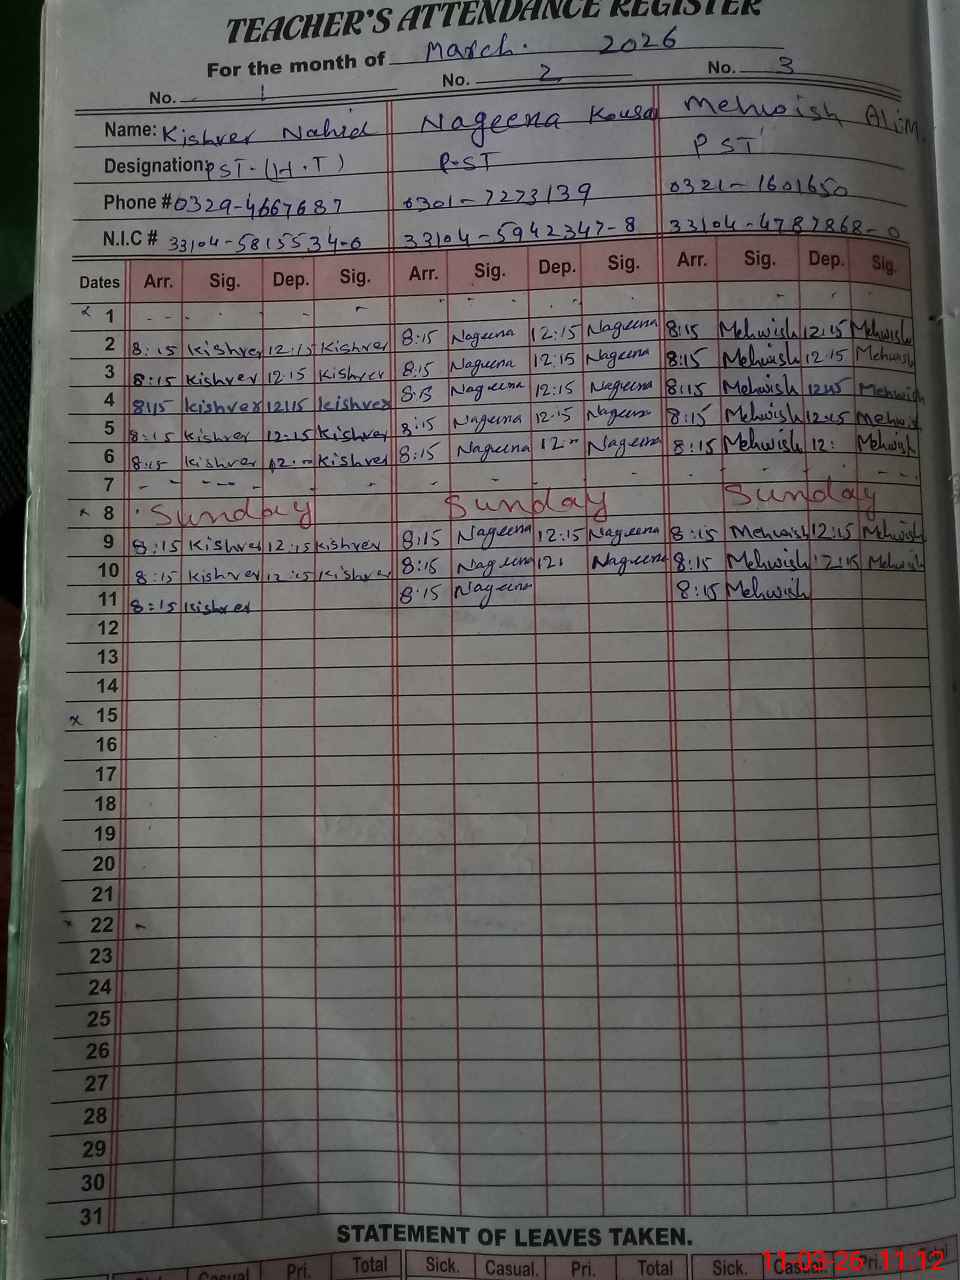 TEACHER'S ATTENDANCE REGISTER
For the month of March. 2026
No. 1 No. 2 No. 3
Name: Kishver Nahid Nageena Kousa Mehwish Alim.
Designation PST.(H.T) P.ST PST
Phone # 0329-4667687 0301-7273139 0321-1601650
N.I.C # 33104-5815534-6 33104-5942347-8 33104-4787868-0
Dates Arr. Sig. Dep. Sig. Arr. Sig. Dep. Sig. Arr. Sig. Dep. Sig.
x 1
2 8:15 Kishver 12:15 Kishver 8:15 Nageena 12:15 Nageena 8:15 Mehwish 12:15 Mehwish
3 8:15 Kishver 12:15 Kishver 8:15 Nageena 12:15 Nageena 8:15 Mehwish 12:15 Mehwish
4 8:15 Kishver 12:15 Kishver 8:15 Nageena 12:15 Nageena 8:15 Mehwish 12:15 Mehwish
5 8:15 Kishver 12:15 Kishver 8:15 Nageena 12:15 Nageena 8:15 Mehwish 12:15 Mehwish
6 8:15 Kishver 12: Kishver 8:15 Nageena 12 Nageena 8:15 Mehwish 12: Mehwish
7
x 8 Sunday Sunday Sunday
9 8:15 Kishver 12:15 Kishver 8:15 Nageena 12:15 Nageena 8:15 Mehwish 12:15 Mehwish
10 8:15 Kishver 12:15 Kishver 8:15 Nageena 12: Nageena 8:15 Mehwish 12:15 Mehwish
11 8:15 Kishver 8:15 Nageena 8:15 Mehwish
12
13
14
x 15
16
17
18
19
20
21
x 22 -
23
24
25
26
27
28
29
30
31
STATEMENT OF LEAVES TAKEN.
Casual Pri. Total Sick. Casual. Pri. Total Sick. Casual. Pri.
11-03-26 11:12